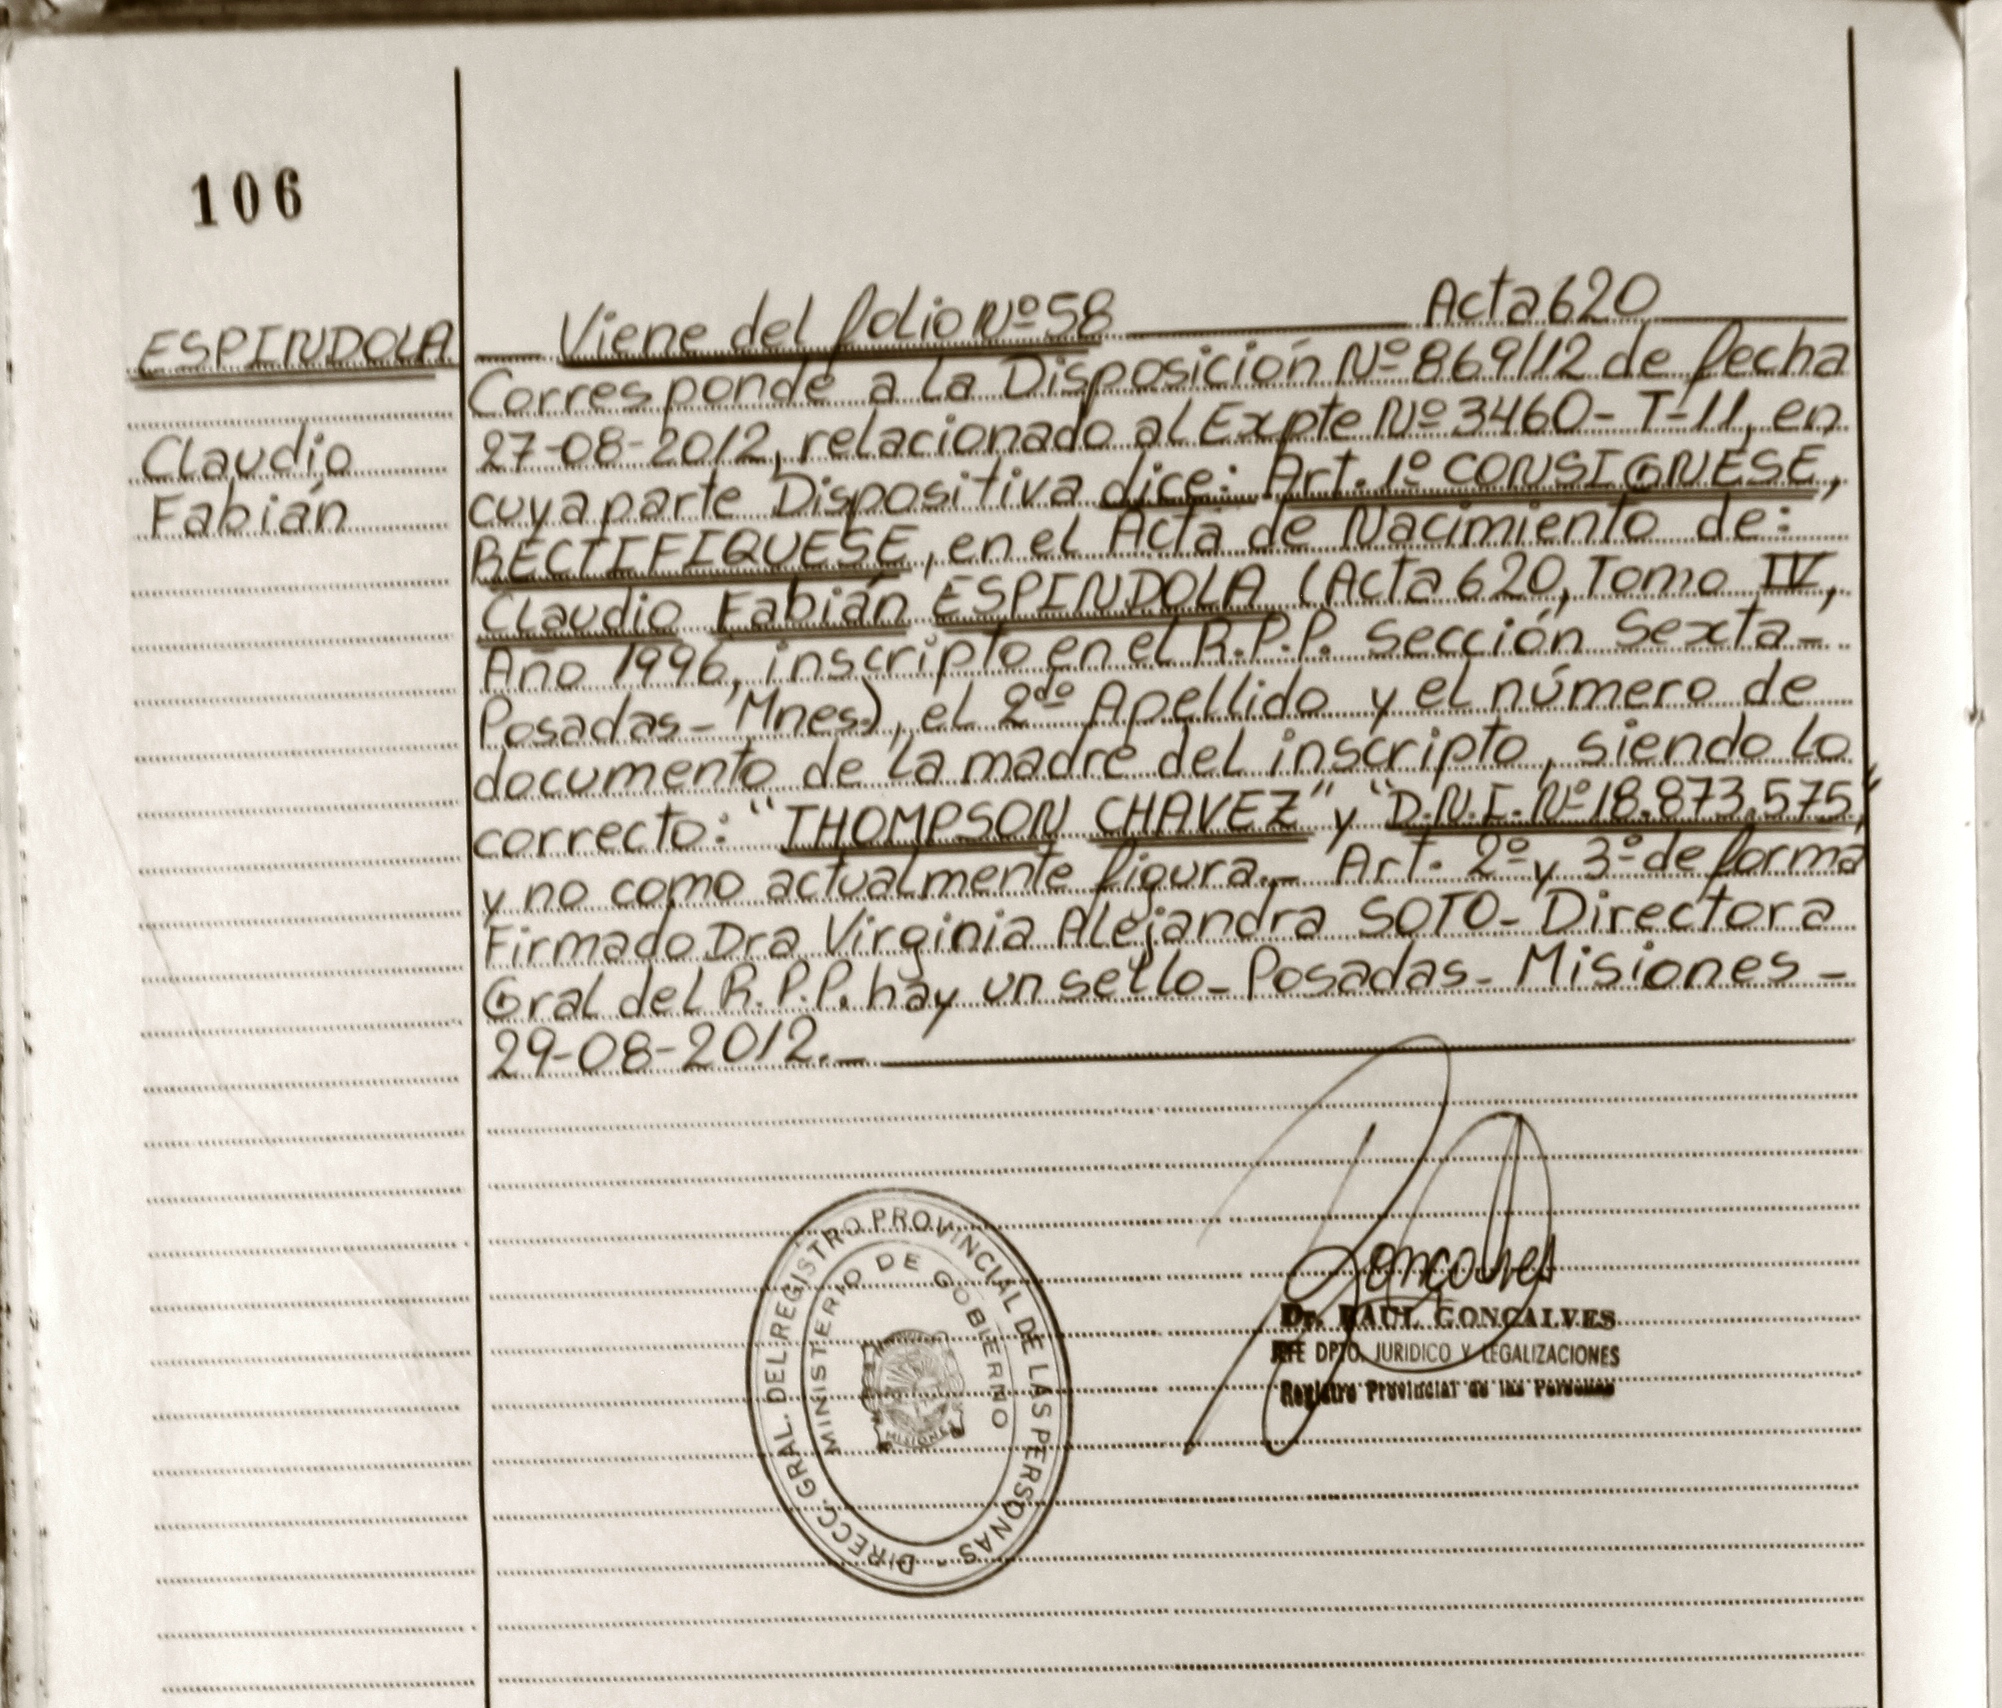 106
ESPINDOLA
Claudio
Fabián
Viene del folio Nº 58 Acta 620
Corresponde a la Disposición Nº 869/12 de fecha
27-08-2012, relacionado al Expte Nº 3460-T-11, en
cuya parte Dispositiva dice: Art. 1º CONSIGNESE,
RECTIFIQUESE, en el Acta de Nacimiento de:
Claudio Fabián ESPINDOLA (Acta 620, Tomo IV,
Año 1996, inscripto en el R.P.P. Sección Sexta-
Posadas- Mnes.), el 2do Apellido y el número de
documento de la madre del inscripto, siendo lo
correcto: "THOMPSON CHAVEZ" y "D.N.I. Nº 18.873.575,"
y no como actualmente figura.- Art. 2º y 3º de forma
Firmado Dra Virginia Alejandra SOTO- Directora
Gral del R.P.P. hay un sello- Posadas- Misiones-
29-08-2012.-
DIRECC. GRAL. DEL REGISTRO PROVINCIAL DE LAS PERSONAS -
MINISTERIO DE GOBIERNO
MISIONES
Goncalves
Dr. RAUL GONCALVES
JEFE DPTO. JURIDICO Y LEGALIZACIONES
Registro Provincial de las Personas